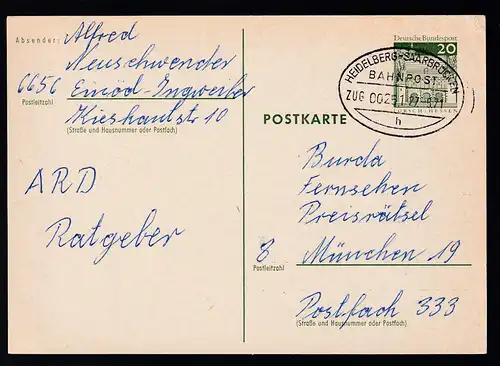 Absender: Alfred
Neuschwender
6656 Einöd-Ingweiler
Postleitzahl
Kieshaulstr 10
(Straße und Hausnummer oder Postfach)
ARD
Ratgeber
Deutsche Bundespost
20
HEIDELBERG-SAARBRÜCKEN
BAHNPOST
ZUG
h
LORSCH-HESSEN
POSTKARTE
Burda
Fernsehen
Preisrätsel
8 München 19
Postleitzahl
Postfach 333
(Straße und Hausnummer oder Postfach)